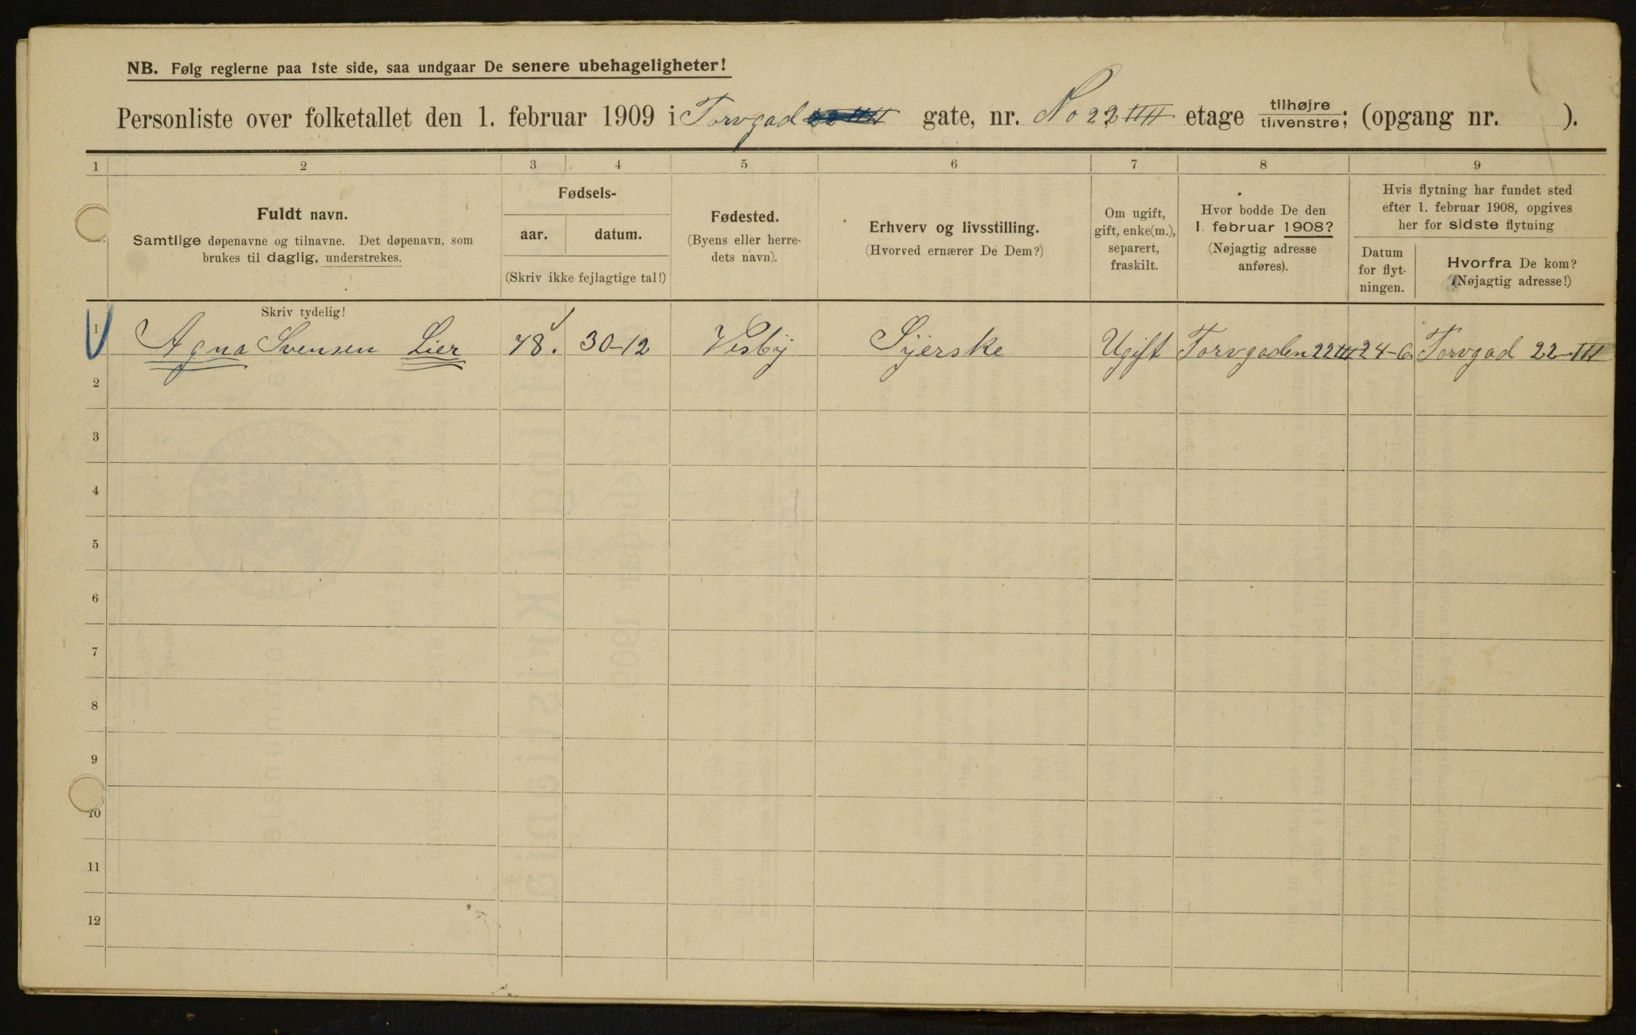 NB. Følg reglerne paa 1ste side, saa undgaar De senere ubehageligheter!
Personliste over folketallet den 1. februar 1909 i Torvgad gate, nr. No 22 IIII etage tilhøjre
tilvenstre; (opgang nr. ).
1 2 3 4 5 6 7 8 9
Fuldt navn.
Samtlige døpenavne og tilnavne. Det døpenavn, som
brukes til daglig, understrekes.
Fødsels-
aar. datum.
(Skriv ikke fejlagtige tal!)
Fødested.
(Byens eller herre-
dets navn).
Erhverv og livsstilling.
(Hvorved ernærer De Dem?)
Om ugift,
gift, enke(m.),
separert,
fraskilt.
Hvor bodde De den
1. februar 1908?
(Nøjagtig adresse
anføres).
Hvis flytning har fundet sted
efter 1. februar 1908, opgives
her for sidste flytning
Datum
for flyt-
ningen.
Hvorfra De kom?
(Nøjagtig adresse!)
Skriv tydelig!
1 Agna Svensen Lier 78. 30-12 Visby Syerske Ugift Torvgaden 22 III 24-6 Torvgad 22-III
2
3
4
5
6
7
8
9
10
11
12